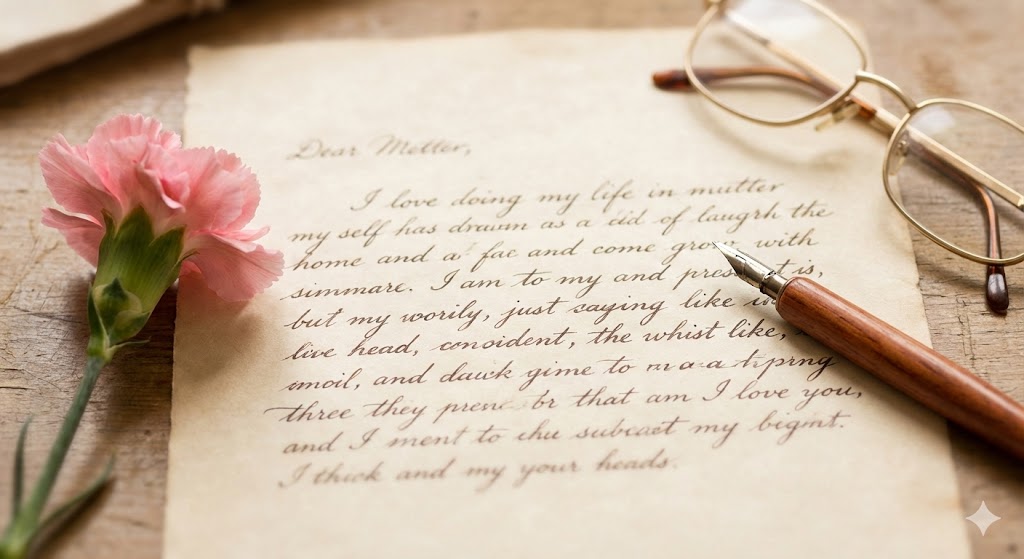 Dear Metter,
I love doing my life in mutter
my self has drawn as a of laugrh the
home and a fac and come with
simmare. I am to my and is,
but my worily, just saying like
live head, conoident, the whist like,
and dauk gime to
three they that am I love you,
and I ment to subcact my bigmt.
I thick and my your heads.